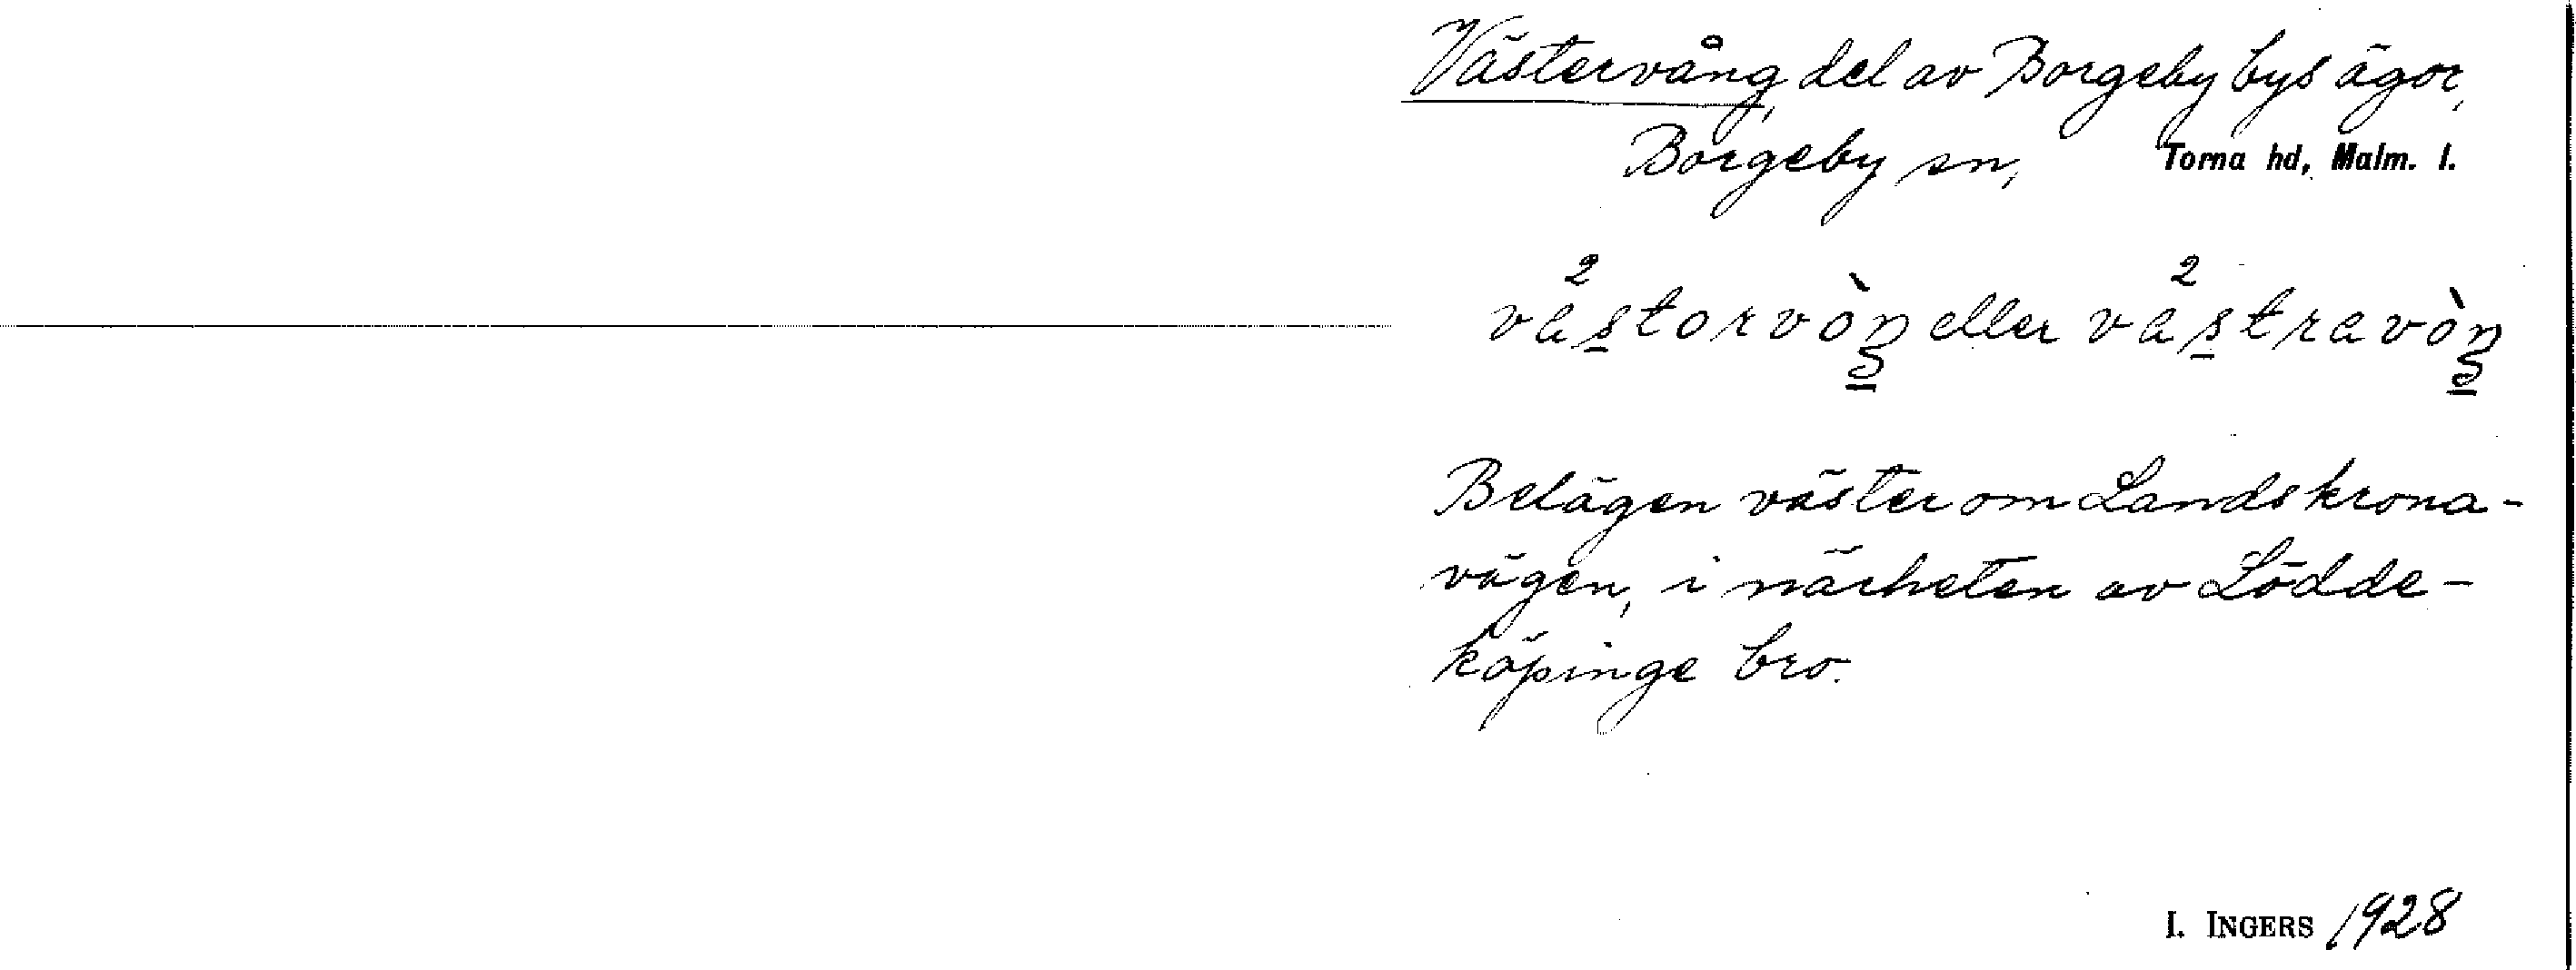 Västervång, del av Borgeby bys ägor,
Borgeby sn, Torna hd, Malm. l.
eller
Belägen väster om Landskrona-
vägen, i närheten av Lödde-
köpinge bro.
I. INGERS 1928